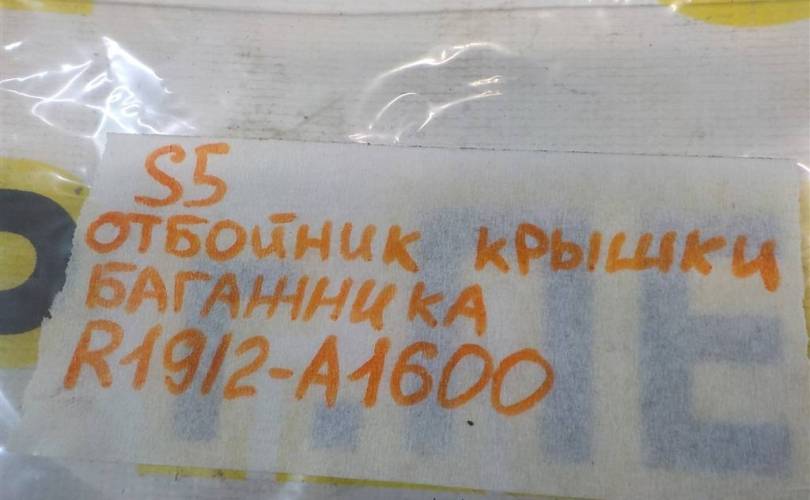 S5
ОТБОЙНИК КРЫШКИ
БАГАЖНИКА
R19/2-A1600